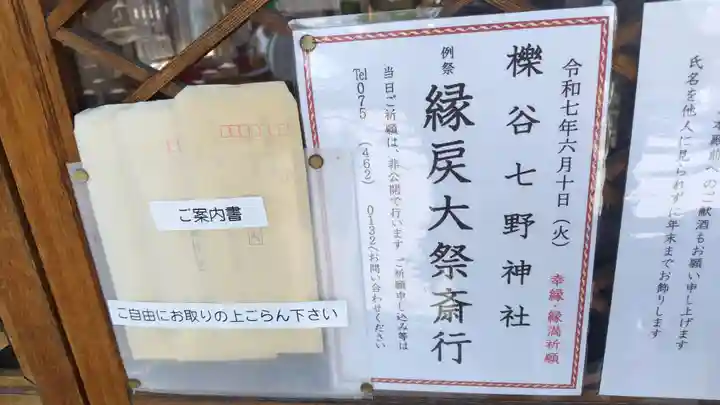 令和七年六月十日（火）
幸縁・縁満祈願
櫟谷七野神社
例祭
縁戻大祭斎行
当日ご祈願は、非公開で行います ご祈願申し込み等は
Tel 075 （462） 0132へお問い合わせください
ご案内書
ご自由にお取りの上ごらん下さい
へのご献酒もお願い申し上げます
氏名を他人に見られずに年末までお飾りします